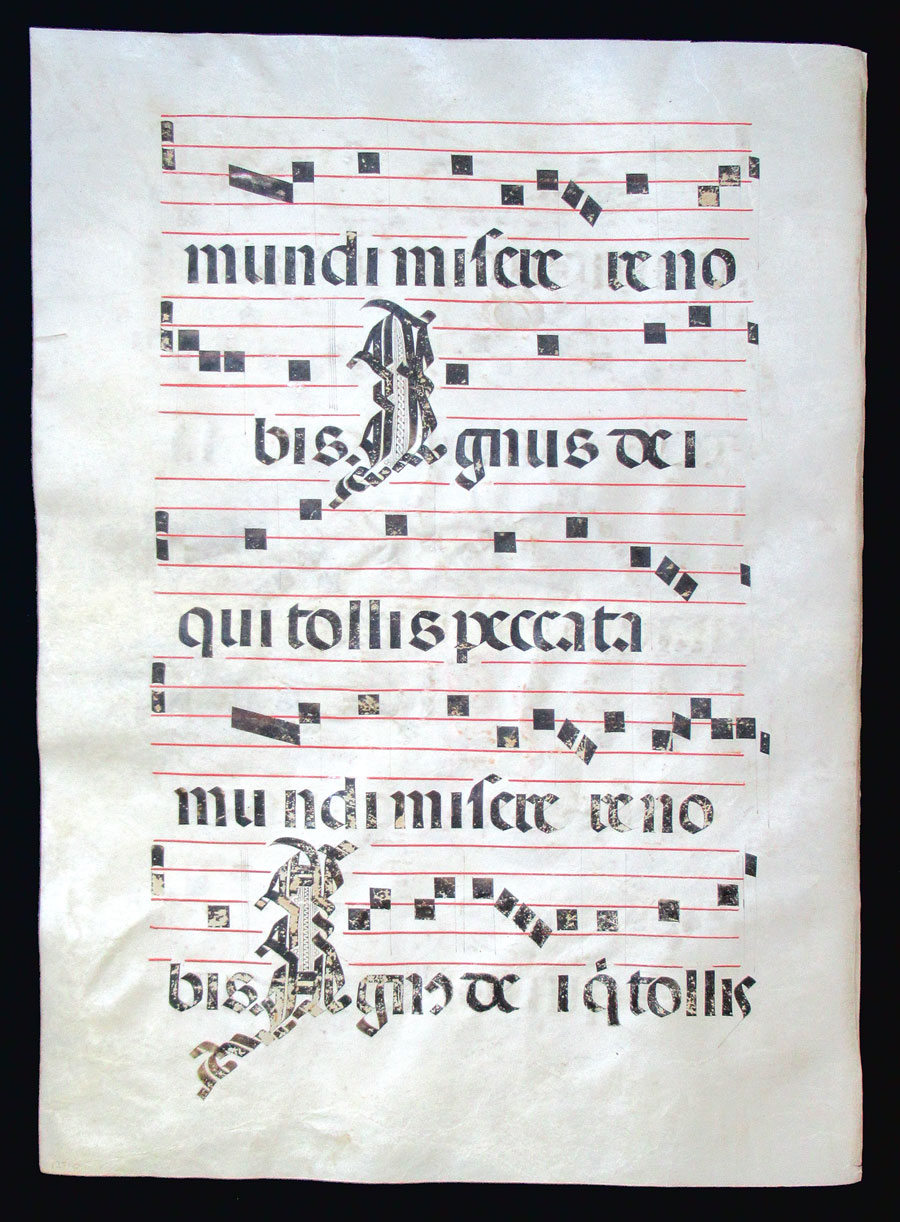 mundi miſere re no
bis. Agnus dei
qui tollis peccata
mu ndi miſere re no
bis. Agnꝰ de i q̇ tollis